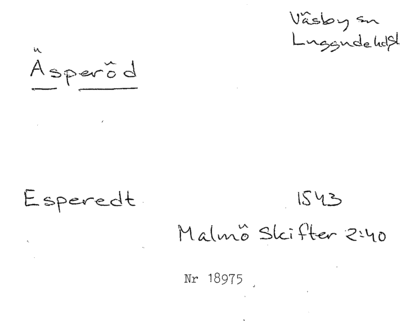 Väsby sn
Luggude hd Sk
Äsperöd
Esperedt 1543
Malmö Skifter 2:40
Nr 18975